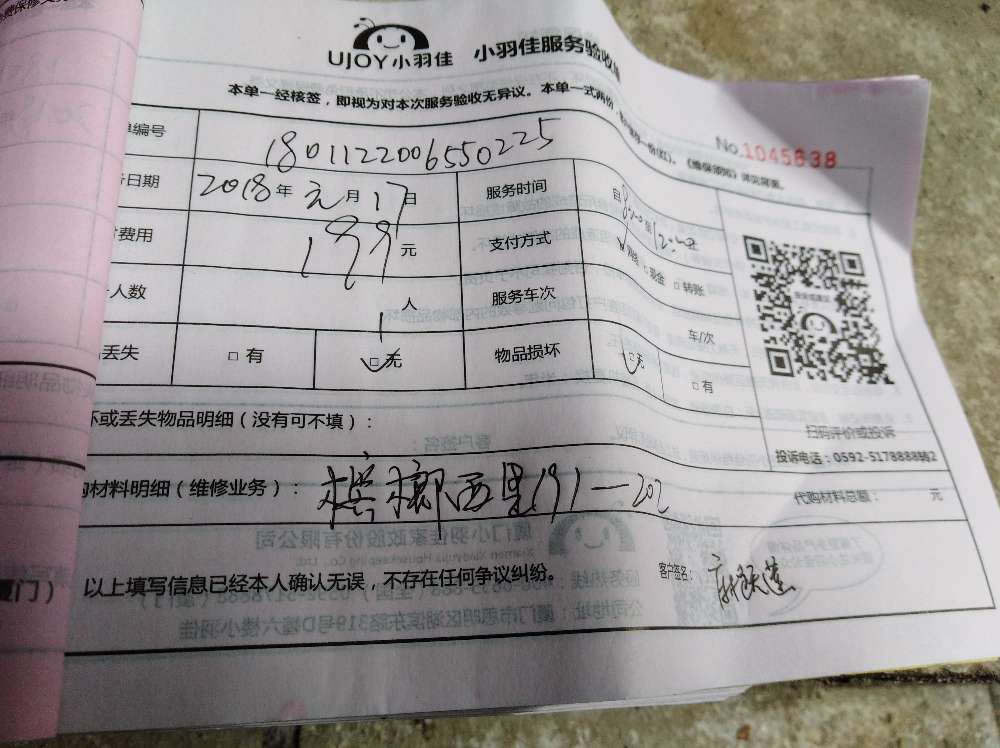 UJOY小羽佳 小羽佳服务验收单
本单一经核签，即视为对本次服务验收无异议。本单一式两份，
No.1045638
单编号 1801122006550225
日期 2018年元月17日 服务时间 自8:00至12:00
费用 199元 支付方式 网络 □现金 □转账
人数 1人 服务车次 车/次
丢失 □有 □无 物品损坏 □无 □有
坏或丢失物品明细（没有可不填）：
扫码评价或投诉
投诉电话：0592-5178888转2
购材料明细（维修业务）： 槟榔西里191—202 代购材料总额： 元
厦门） 以上填写信息已经本人确认无误，不存在任何争议纠纷。 客户签名：